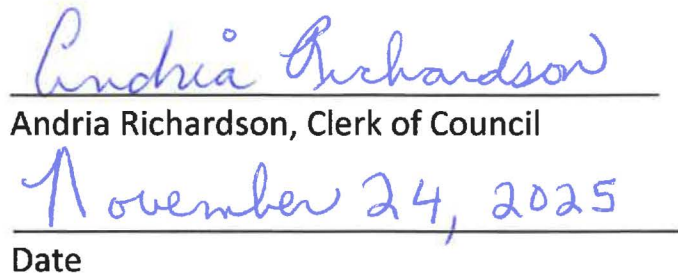 Andria Richardson
Andria Richardson, Clerk of Council
November 24, 2025
Date